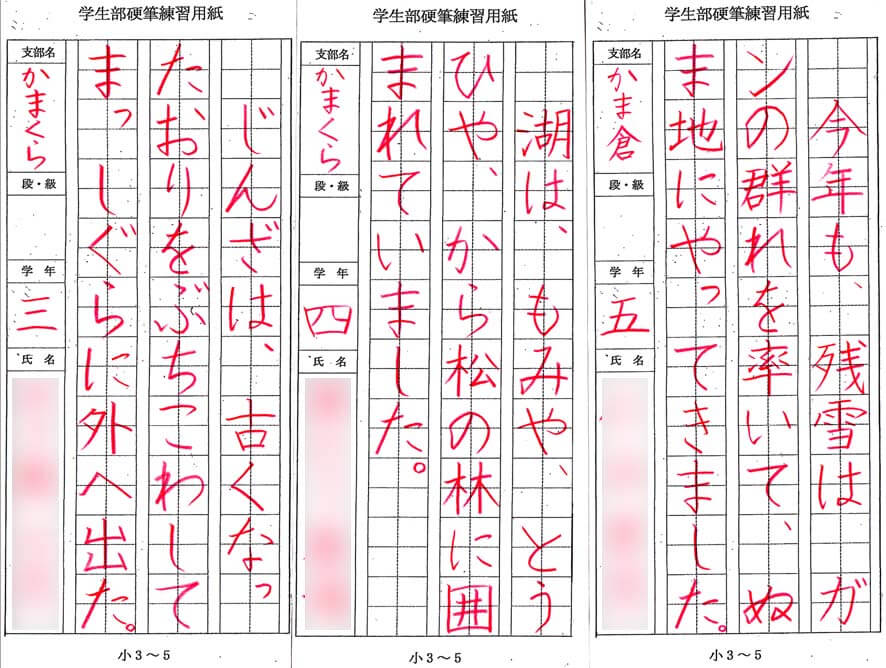 学生部硬筆練習用紙
じんざは、 古くなっ
たおりをぶちこわして
まっしぐらに外へ出た。
支部名
かまくら
段・級
学年
三
氏名
小3～5
学生部硬筆練習用紙
湖は、もみや、とう
ひや、から松の林に囲
まれていました。
支部名
かまくら
段・級
学年
四
氏名
小3～5
学生部硬筆練習用紙
今年も、残雪は ガ
ンの群れを率いて、ぬ
ま地にやってきました。
支部名
かま倉
段・級
学年
五
氏名
小3～5